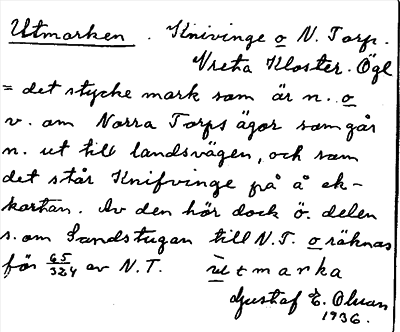 Utmarken . Knivinge o N. Torp.
Vreta Kloster. Ögl
= det stycke mark som är n. o
v. om Norra Torps ägor som går
n. ut till landsvägen, och som
det står Knifvinge på å ek-
kartan. Av den hör dock ö. delen
s. om Sandstugan till N.T. o räknas
för 65/324 av N.T. utmarka
Gustaf E. Olsson
1936.